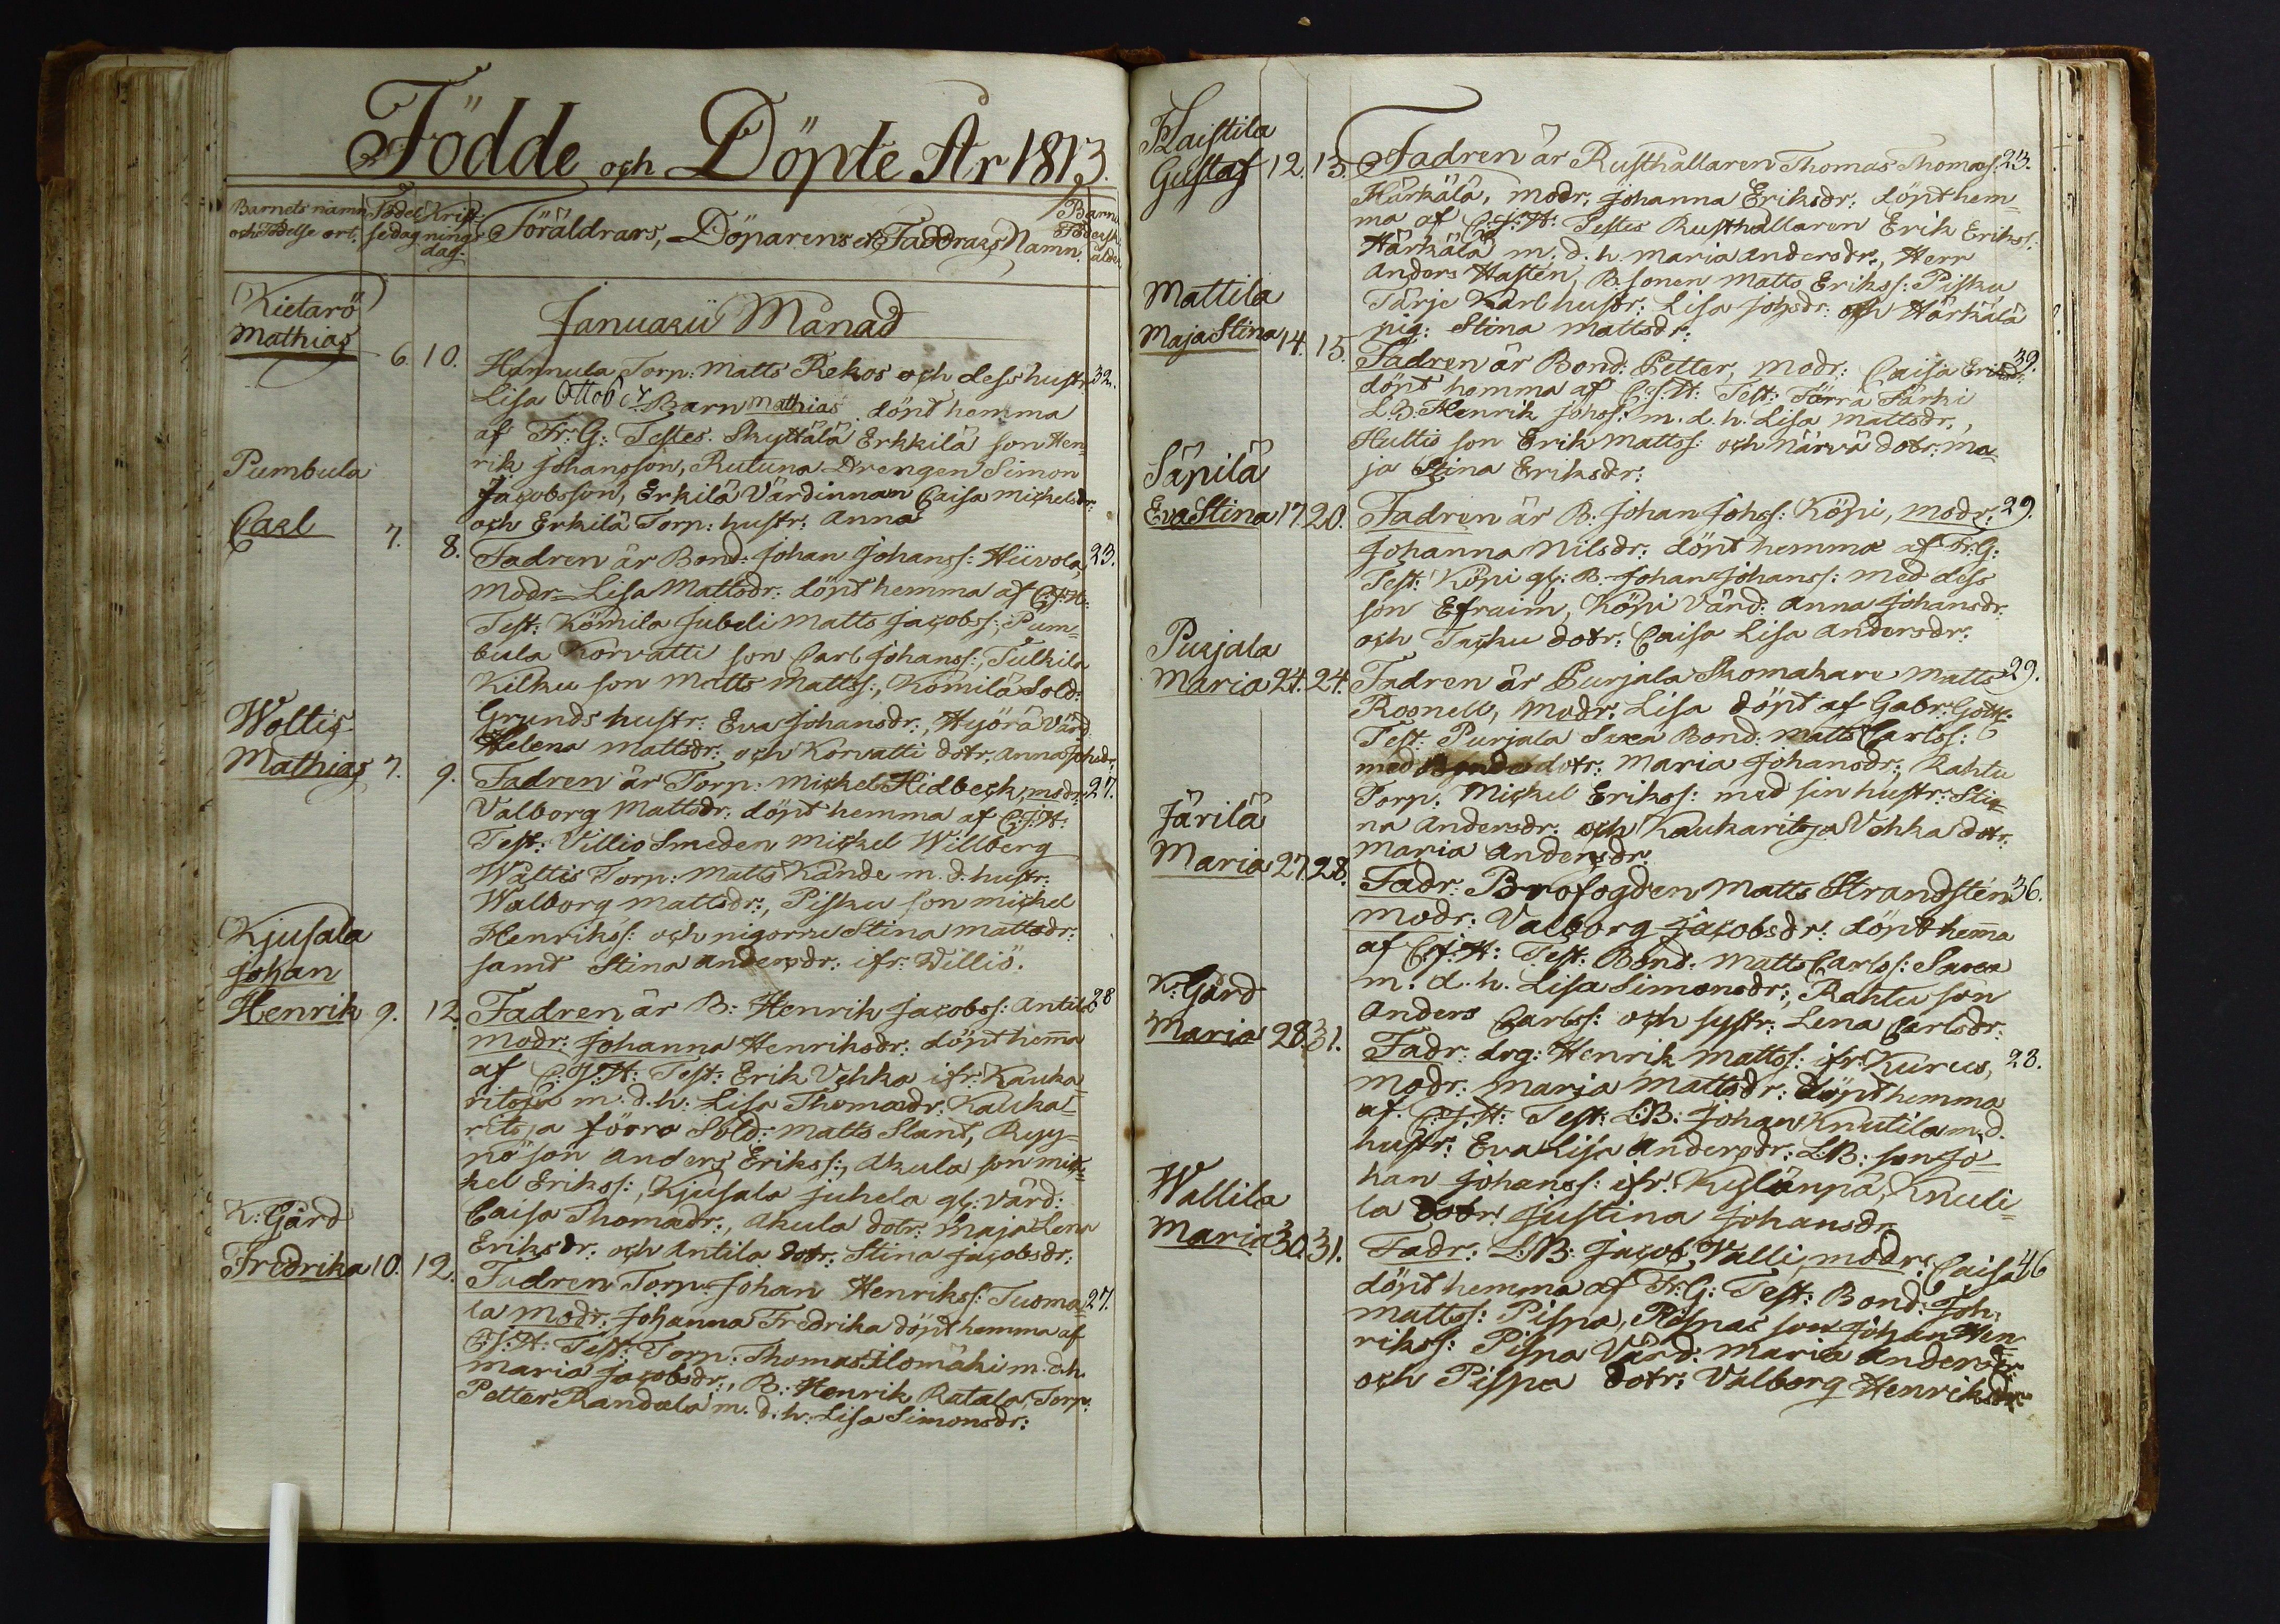 Födde och Döpte År 1813.
Barnets namn och Födelse ort.
Födelsedag
Kristningsdag.
Föräldrars, Döparens och Faddrars Namn.
Kietarö
Januarii Månad
Mathias 6. 10. Hannula Torp: Matts Rekos och dess hustr: 32.
Lisa Barn Mathias döpt hemma
af Fr: G: Testes. Skyttälä Erkkilä son Hen-
rik Johansson, Rutuna Drengen Simon
Jacobsson, Erkilä Värdinnan Caisa Michelsdr:
och Erkilä Torp: hustr: Anna
Pumbula
Carl 7. 8. Fadren är Bond: Johan Johanss: Hiivola, 23.
Modr: Lisa Mattsdr: döpt hemma af C: J: H:
Test: Kömilä Jubeli Matts Jacobss:, Pum-
bula Korvatti son Carl Johanss:, Tulkila
Kilku son Matts Mattss:, Kömilä Sold:
Grunds hustr: Eva Johansdr:, Hyörä Värd:
Helena Mattsdr: och Korvatti dotr: Anna Johsdr:
Woltis
Mathias 7. 9. Fadren är Torp: Michel Hidbeck, modr: 27.
Valborg Mattsdr: döpt hemma af C: J: H:
Test: Villio Smeden Michel Willberg
Wältis Torp: Matts Kande m. d. hustr:
Walborg Mattsdr:, Pisku son Michel
Henrikss: och pigorne Stina Mattsdr:
samt Stina Andersdr: ifr: Williö.
Kjusala
Johan
Henrik 9. 12. Fadren är B: Henrik Jacobss: Antila 28
Modr: Johanna Henriksdr: döpt hem̅a
af C: J: H: Test: Erik Vehka ifr: Kauka-
ritsja m. d. h: Lisa Thomasdr: Kauka-
ritsja förra Sold: Matts Slant, Ryy-
kö son Anders Erikss:, Akula son Mic-
kel Erikss:, Kjusala Juhela gl: värd:
Caisa Thomadr:, Akula dotr: Maja Lena
Eriksdr: och Antila dotr: Stina Jacobsdr:
K: Gård
Fredrika 10. 12. Fadren Torp: Johan Henrikss: Tuoma- 27.
la modr: Johanna Fredrika döpt hemma af
C: J: H: Test: Torp: Thomas Ilomäki m. d. h.
Maria Jacobsdr:, B: Henrik Ratala, Torp:
Petter Randala m. d. h: Lisa Simonsdr:
Haistila
Gustaf 12. 13. Fadren är Rusthållaren Thomas Thomass: 23.
Härkälä, modr: Johanna Eriksdr: döpt hem-
ma af C: J: H: Testes Rusthållaren Erik Erikss:
Härkälä m. d. h. Maria Andersdr:, Herr
Anders Hasten, B. sonen Matts Erikss: Pisku
Tärje Karl hustr: Lisa Johsdr: och Härkälä
pig: Stina Mattsdr:
Mattila
Maja Stina 14. 15. Fadren är Bond: Petter, modr: Caisa Eriksdr: 39.
döpt hemma af C: J: H: Test: Förra Särki
L: B: Henrik Johss: m. d. h. Lisa Mattsdr:,
Huttis son Erik Mattss: och Närvä dotr: Ma-
ja Stina Eriksdr:
Säpilä
Eva Stina 17. 20. Fadren är B: Johan Johss: Köpi, modr: 29.
Johanna Nilsdr: döpt hemma af Fr: G:
Test: Köpi gl: B. Johan Johanss: med dess
son Efraim, Köpi Värd: Anna Johansdr:
och Tacku dotr: Caisa Lisa Andersdr:
Purjala
Maria 24. 24. Fadren är Purjala Skomakare Matts 29.
Rosnell, modr: Lisa döpt af Gabr: Gottl:
Test: Purjala Saxa Bond: Matts Carlss:
med dotr: Maria Johansdr:, Rahtu
Torp: Michel Erikss: med sin hustr: Sti-
na Andersdr: och Kaukaritsja Vehka dotr:
Maria Andersdr:
Järilä
Maria 27. 28. Fadr: Brofogden Matts Strandstén 36.
modr: Valborg Jacobsdr: döpt hem̅a
af C: J: H: Test: Bond: Matts Carlss: Saxa
m. d. h. Lisa Simonsdr:, Rahtu son
Anders Carlss: och systr: Lena Carlsdr:
K: Gård
Maria 28. 31. Fadr: drg: Henrik Mattss: ifr: Kurus, 28.
modr: Maria Mattsdr: döpt hemma
af. C: J: H: Test: L: B: Johan Knutila m. d.
hustr: Eva Lisa Andersdr: L: B: son Jo-
han Johanss: ifr: Kylänpä, Knuti-
la dotr: Justina Johansdr:
Wallila
Maria 30. 31. Fadr: L: B: Jacob Valli, modr: Caisa 46
döpt hemma af Fr: G: Test: Bond: Joh:
Mattss: Pispa, Pispas son Johan Hen-
rikss: Pispa Värd: Maria Andersdr:
och Pispa dotr: Valborg Henriksdr: